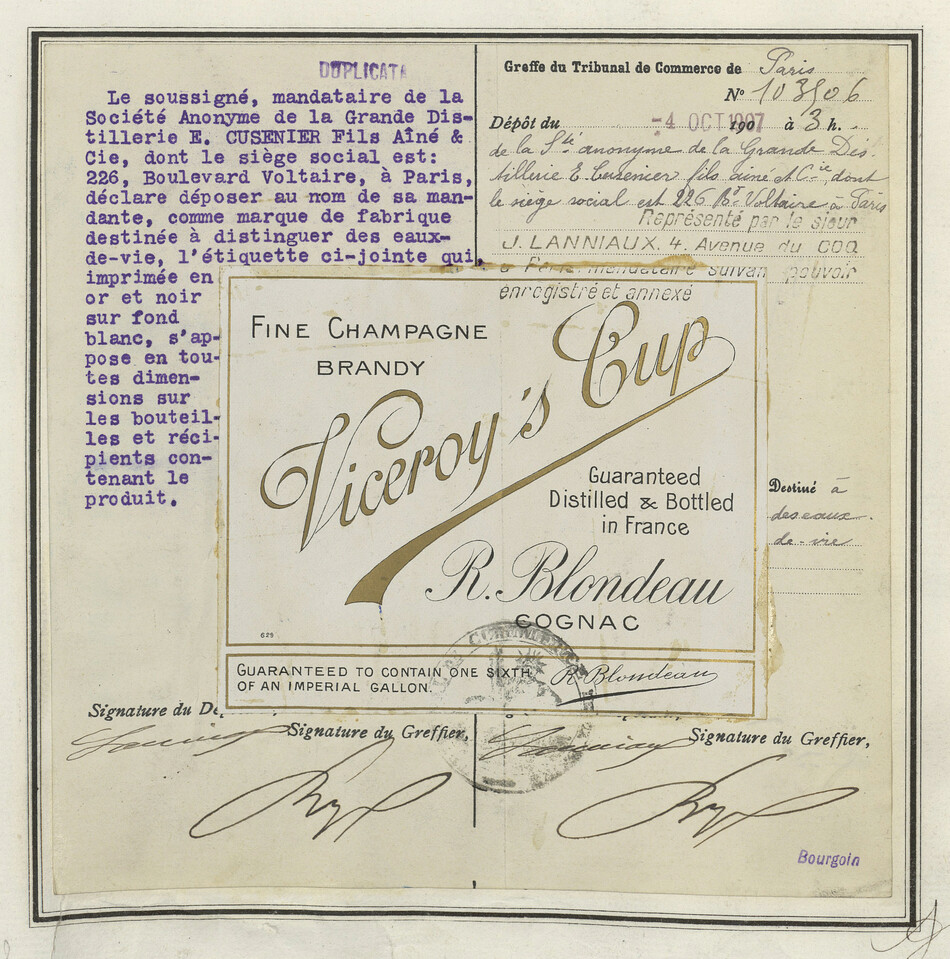 DUPLICATA
Le soussigné, mandataire de la
Société Anonyme de la Grande Dis-
tillerie E. CUSENIER Fils Aîné &
Cie, dont le siège social est:
226, Boulevard Voltaire, à Paris,
déclare déposer au nom de sa man-
dante, comme marque de fabrique
destinée à distinguer des eaux-
de-vie, l'étiquette ci-jointe qui,
imprimée en
or et noir
sur fond
blanc, s'ap-
pose en tou-
tes dimen-
sions sur
les bouteil-
les et réci-
pients con-
tenant le
produit.
Greffe du Tribunal de Commerce de Paris
N° 103506
Dépôt du -4 OCT 1907 à 3 h.
de la Sté anonyme de la Grande Dis-
tillerie E. Cusenier fils ainé & Cie, dont
le siège social est 226 Bt Voltaire à Paris
Représenté par le sieur
J. LANNIAUX. 4. Avenue du COQ
à Paris mandataire suivan pouvoir
enregistré et annexé
FINE CHAMPAGNE
BRANDY
Viceroy's Cup
Guaranteed
Distilled & Bottled
in France
R. Blondeau
COGNAC
628
GUARANTEED TO CONTAIN ONE SIXTH
OF AN IMPERIAL GALLON.
R. Blondeau
Destiné à
des eaux-
de-vie
Signature du Dé
Signature du Greffier,
Signature du Greffier,
Bourgoin